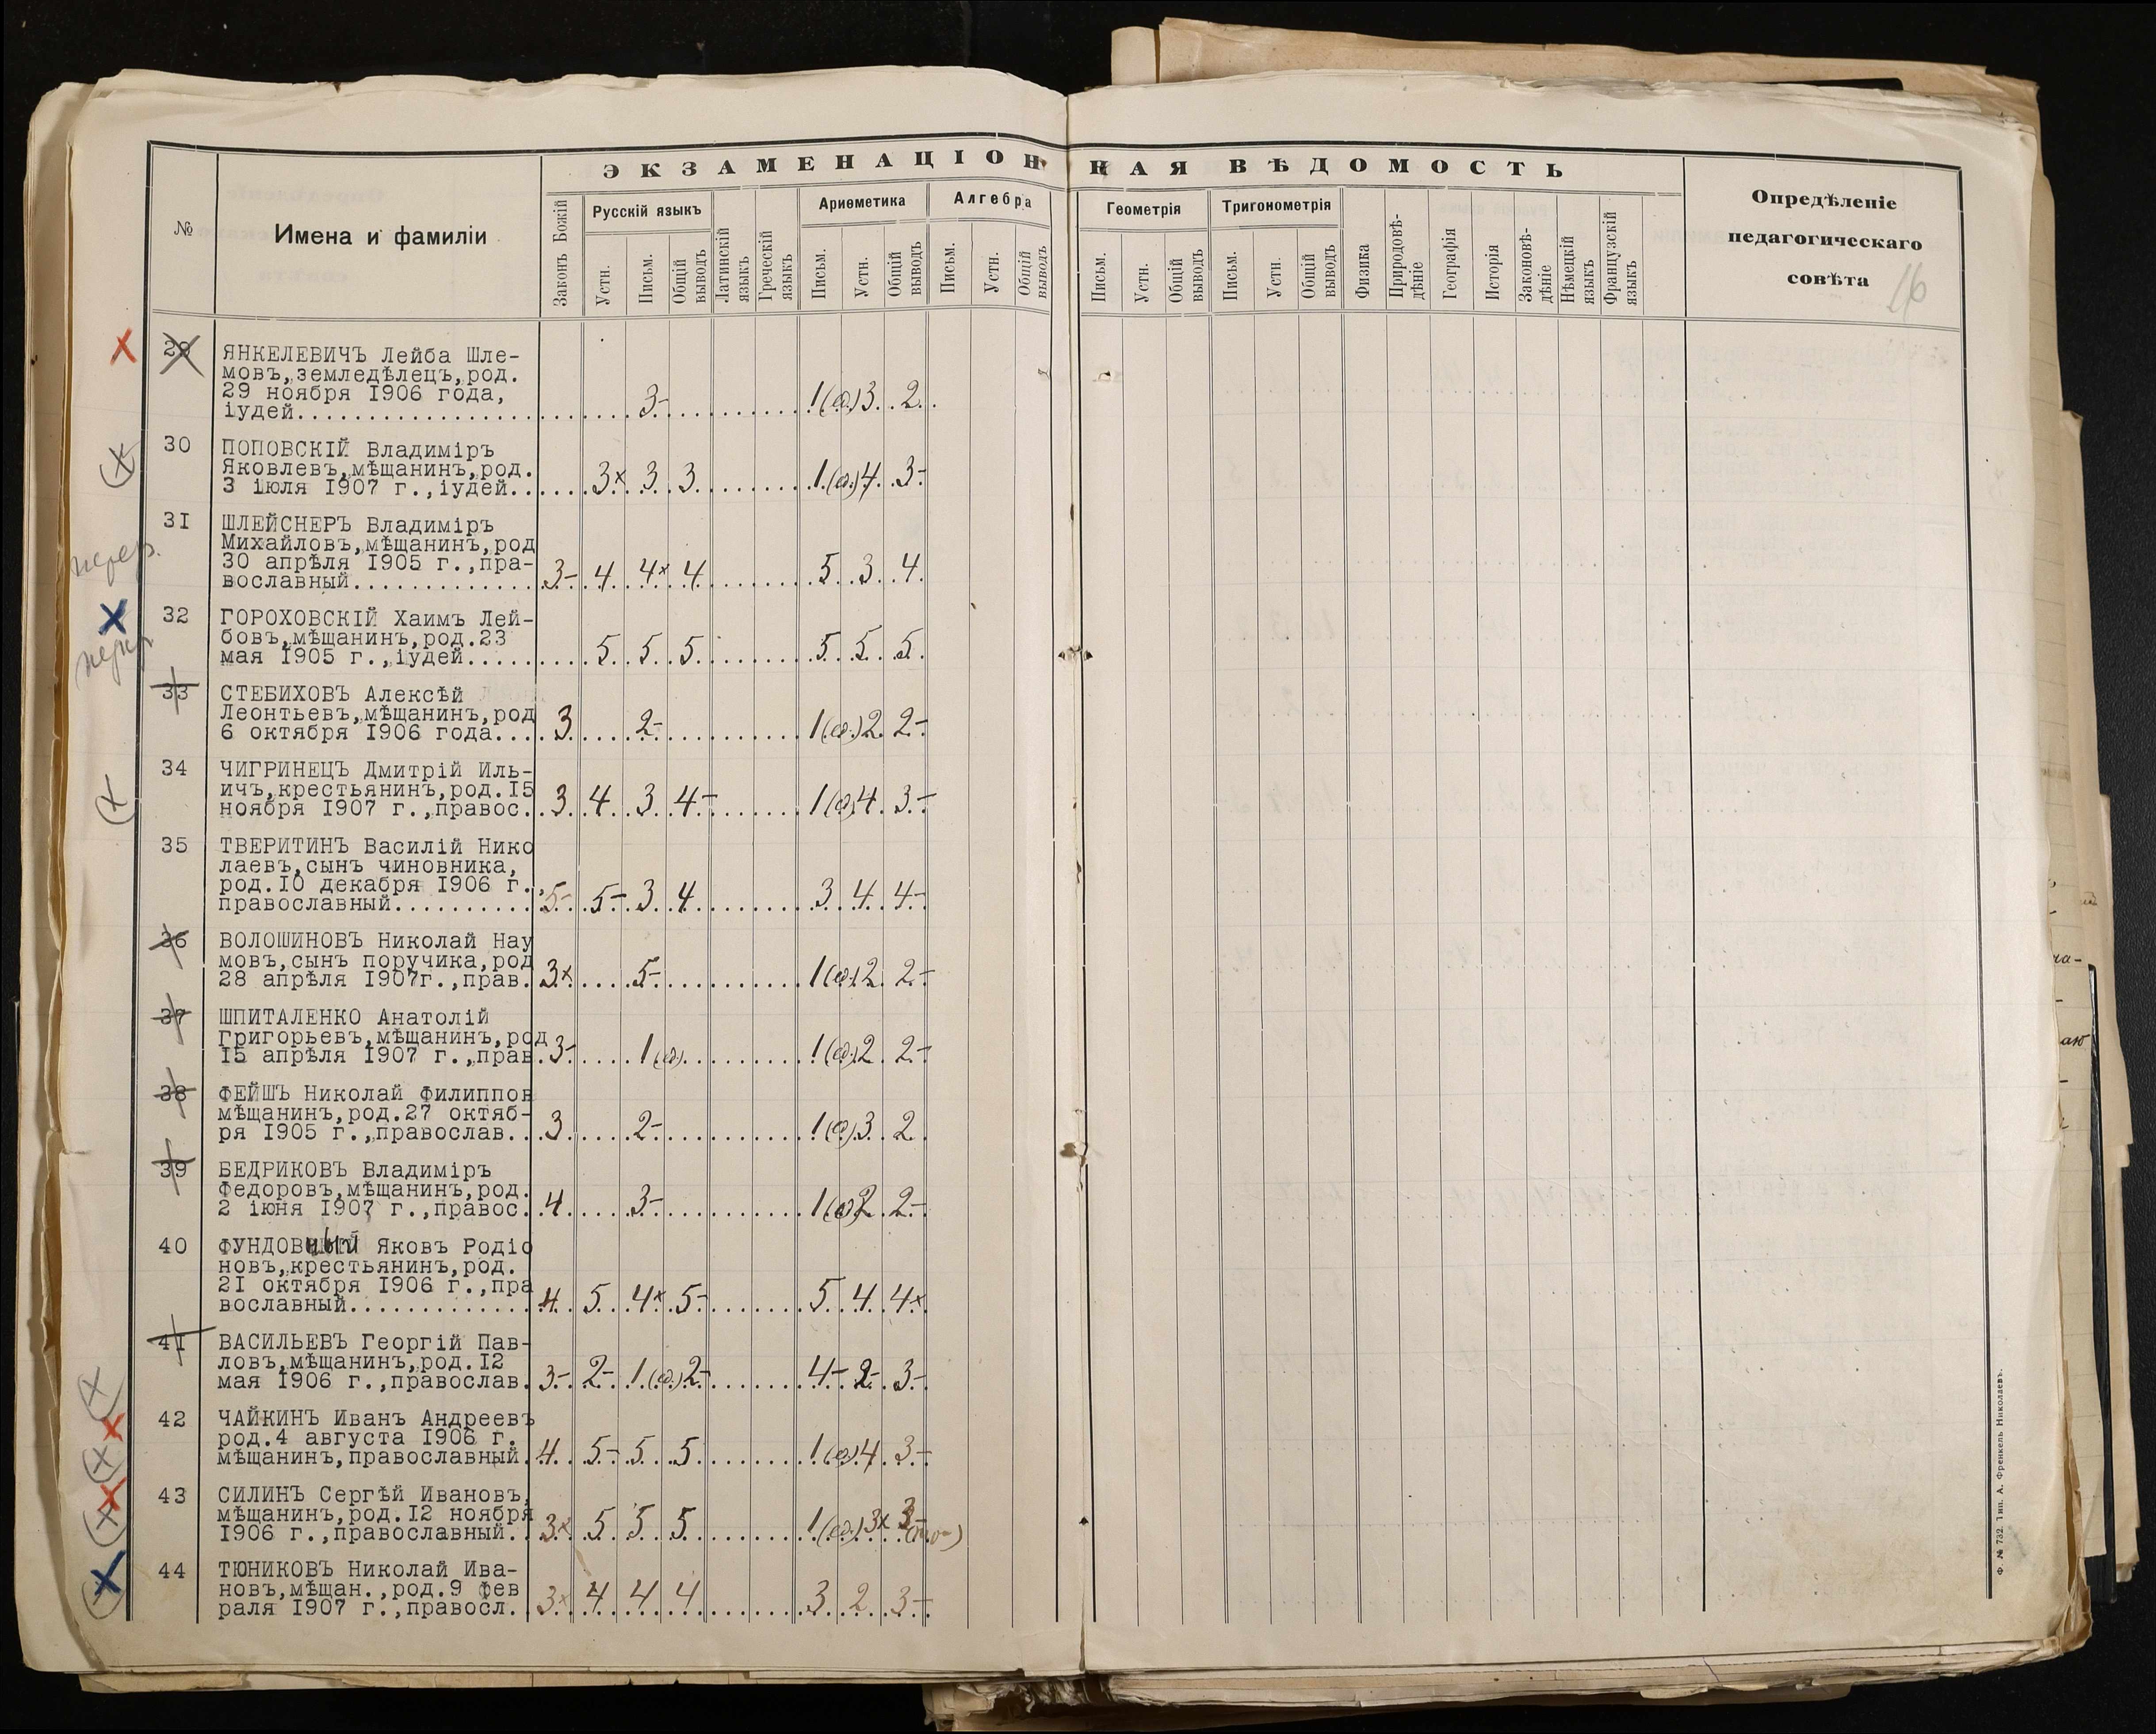 ЭКЗАМЕНАЦІОННАЯ ВѢДОМОСТЬ
№
Имена и фамиліи
Законъ Божій
Русскій языкъ
Устн.
Письм.
Общій выводъ
Латинскій языкъ
Греческій языкъ
Ариѳметика
Письм.
Устн.
Общій выводъ
Алгебра
Письм.
Устн.
Общій выводъ
Геометрія
Письм.
Устн.
Общій выводъ
Тригонометрія
Письм.
Устн.
Общій выводъ
Физика
Природовѣ-
дѣніе
Географія
Исторія
Законовѣ-
дѣніе
Нѣмецкій языкъ
Французскій языкъ
Опредѣленіе
педагогическаго
совѣта
16
29 ЯНКЕЛЕВИЧЪ Лейба Шле-
мовъ,земледѣлецъ,род.
29 ноября 1906 года,
іудей. 3- 1(ед.) 3 2
30 ПОПОВСКІЙ Владиміръ
Яковлевъ,мѣщанинъ,род.
3 іюля 1907 г.,іудей. 3х 3 3 1(ед.) 4 3-
31 ШЛЕЙСНЕРЪ Владиміръ
Михайловъ,мѣщанинъ,род
30 апрѣля 1905 г.,пра-
вославный. 3- 4 4х 4 5 3 4
32 ГОРОХОВСКІЙ Хаимъ Лей-
бовъ,мѣщанинъ,род.23
мая 1905 г.,іудей. 5 5 5 5 5 5
33 СТЕБИХОВЪ Алексѣй
Леонтьевъ,мѣщанинъ,род
6 октября 1906 года. 3 2- 1(ед.) 2 2-
34 ЧИГРИНЕЦЪ Дмитрій Иль-
ичъ,крестьянинъ,род.15
ноября 1907 г.,правос. 3 4 3 4- 1(ед.) 4 3-
35 ТВЕРИТИНЪ Василій Нико
лаевъ,сынъ чиновника,
род.10 декабря 1906 г.,
православный. 5- 5- 3 4 3 4 4-
36 ВОЛОШИНОВЪ Николай Нау
мовъ,сынъ поручика,род
28 апрѣля 1907г.,прав. 3х 5- 1(ед.) 2 2-
37 ШПИТАЛЕНКО Анатолій
Григорьевъ,мѣщанинъ,род
15 апрѣля 1907 г.,прав. 3- 1(ед.) 1(ед.) 2 2-
38 ФЕЙШЪ Николай Филиппов
мѣщанинъ,род.27 октяб-
ря 1905 г.,православ. 3 2- 1(ед.) 3 2
39 БЕДРИКОВЪ Владиміръ
Федоровъ,мѣщанинъ,род.
2 іюня 1907 г.,правос. 4 3- 1(ед.) 2 2-
40 ФУНДОВНЫЙ Яковъ Родіо
новъ,крестьянинъ,род.
21 октября 1906 г.,пра
вославный. 4 5 4х 5- 5 4 4х
41 ВАСИЛЬЕВЪ Георгій Пав-
ловъ,мѣщанинъ,род.12
мая 1906 г.,православ. 3- 2- 1(ед.) 2- 4- 2- 3-
42 ЧАЙКИНЪ Иванъ Андреевъ
род.4 августа 1906 г.
мѣщанинъ,православный. 4 5- 5 5 1(ед.) 4 3-
43 СИЛИНЪ Сергѣй Ивановъ,
мѣщанинъ,род.12 ноября
1906 г.,православный. 3х 5 5 5 1(ед.) 3х 3-
44 ТЮНИКОВЪ Николай Ива-
новъ,мѣщан.,род.9 фев
раля 1907 г.,правосл. 3х 4 4 4 3 2 3-
Ф. № 732. Тип. А. Френкель Николаевъ.